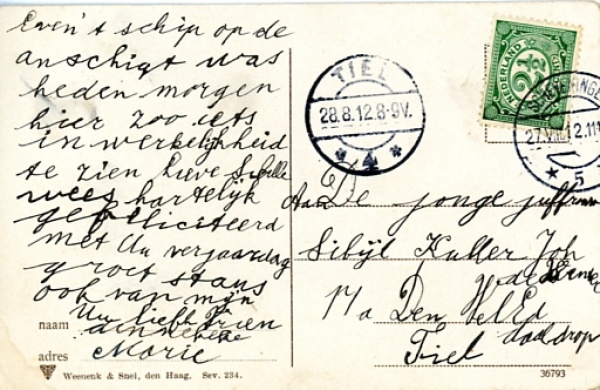 Even 't schip op de
anschigt was
heden morgen
hier zoo iets
in werkelijkheid
te zien Lieve Sibille
wees hartelijk
gefeliciteerd
met Uw verjaardag
groet stans
ook van mijn
Uw liefh
Marie
naam
adres
Weenenk & Snel, den Haag. Sev. 234.
TIEL
28.8.12.8-9V.
4
NEDERLAND
2½
27.VIII 12.11
5
Aan De jonge juffrouw
Sibijl Kuller Joh
p/a Den Held
Tiel
36793